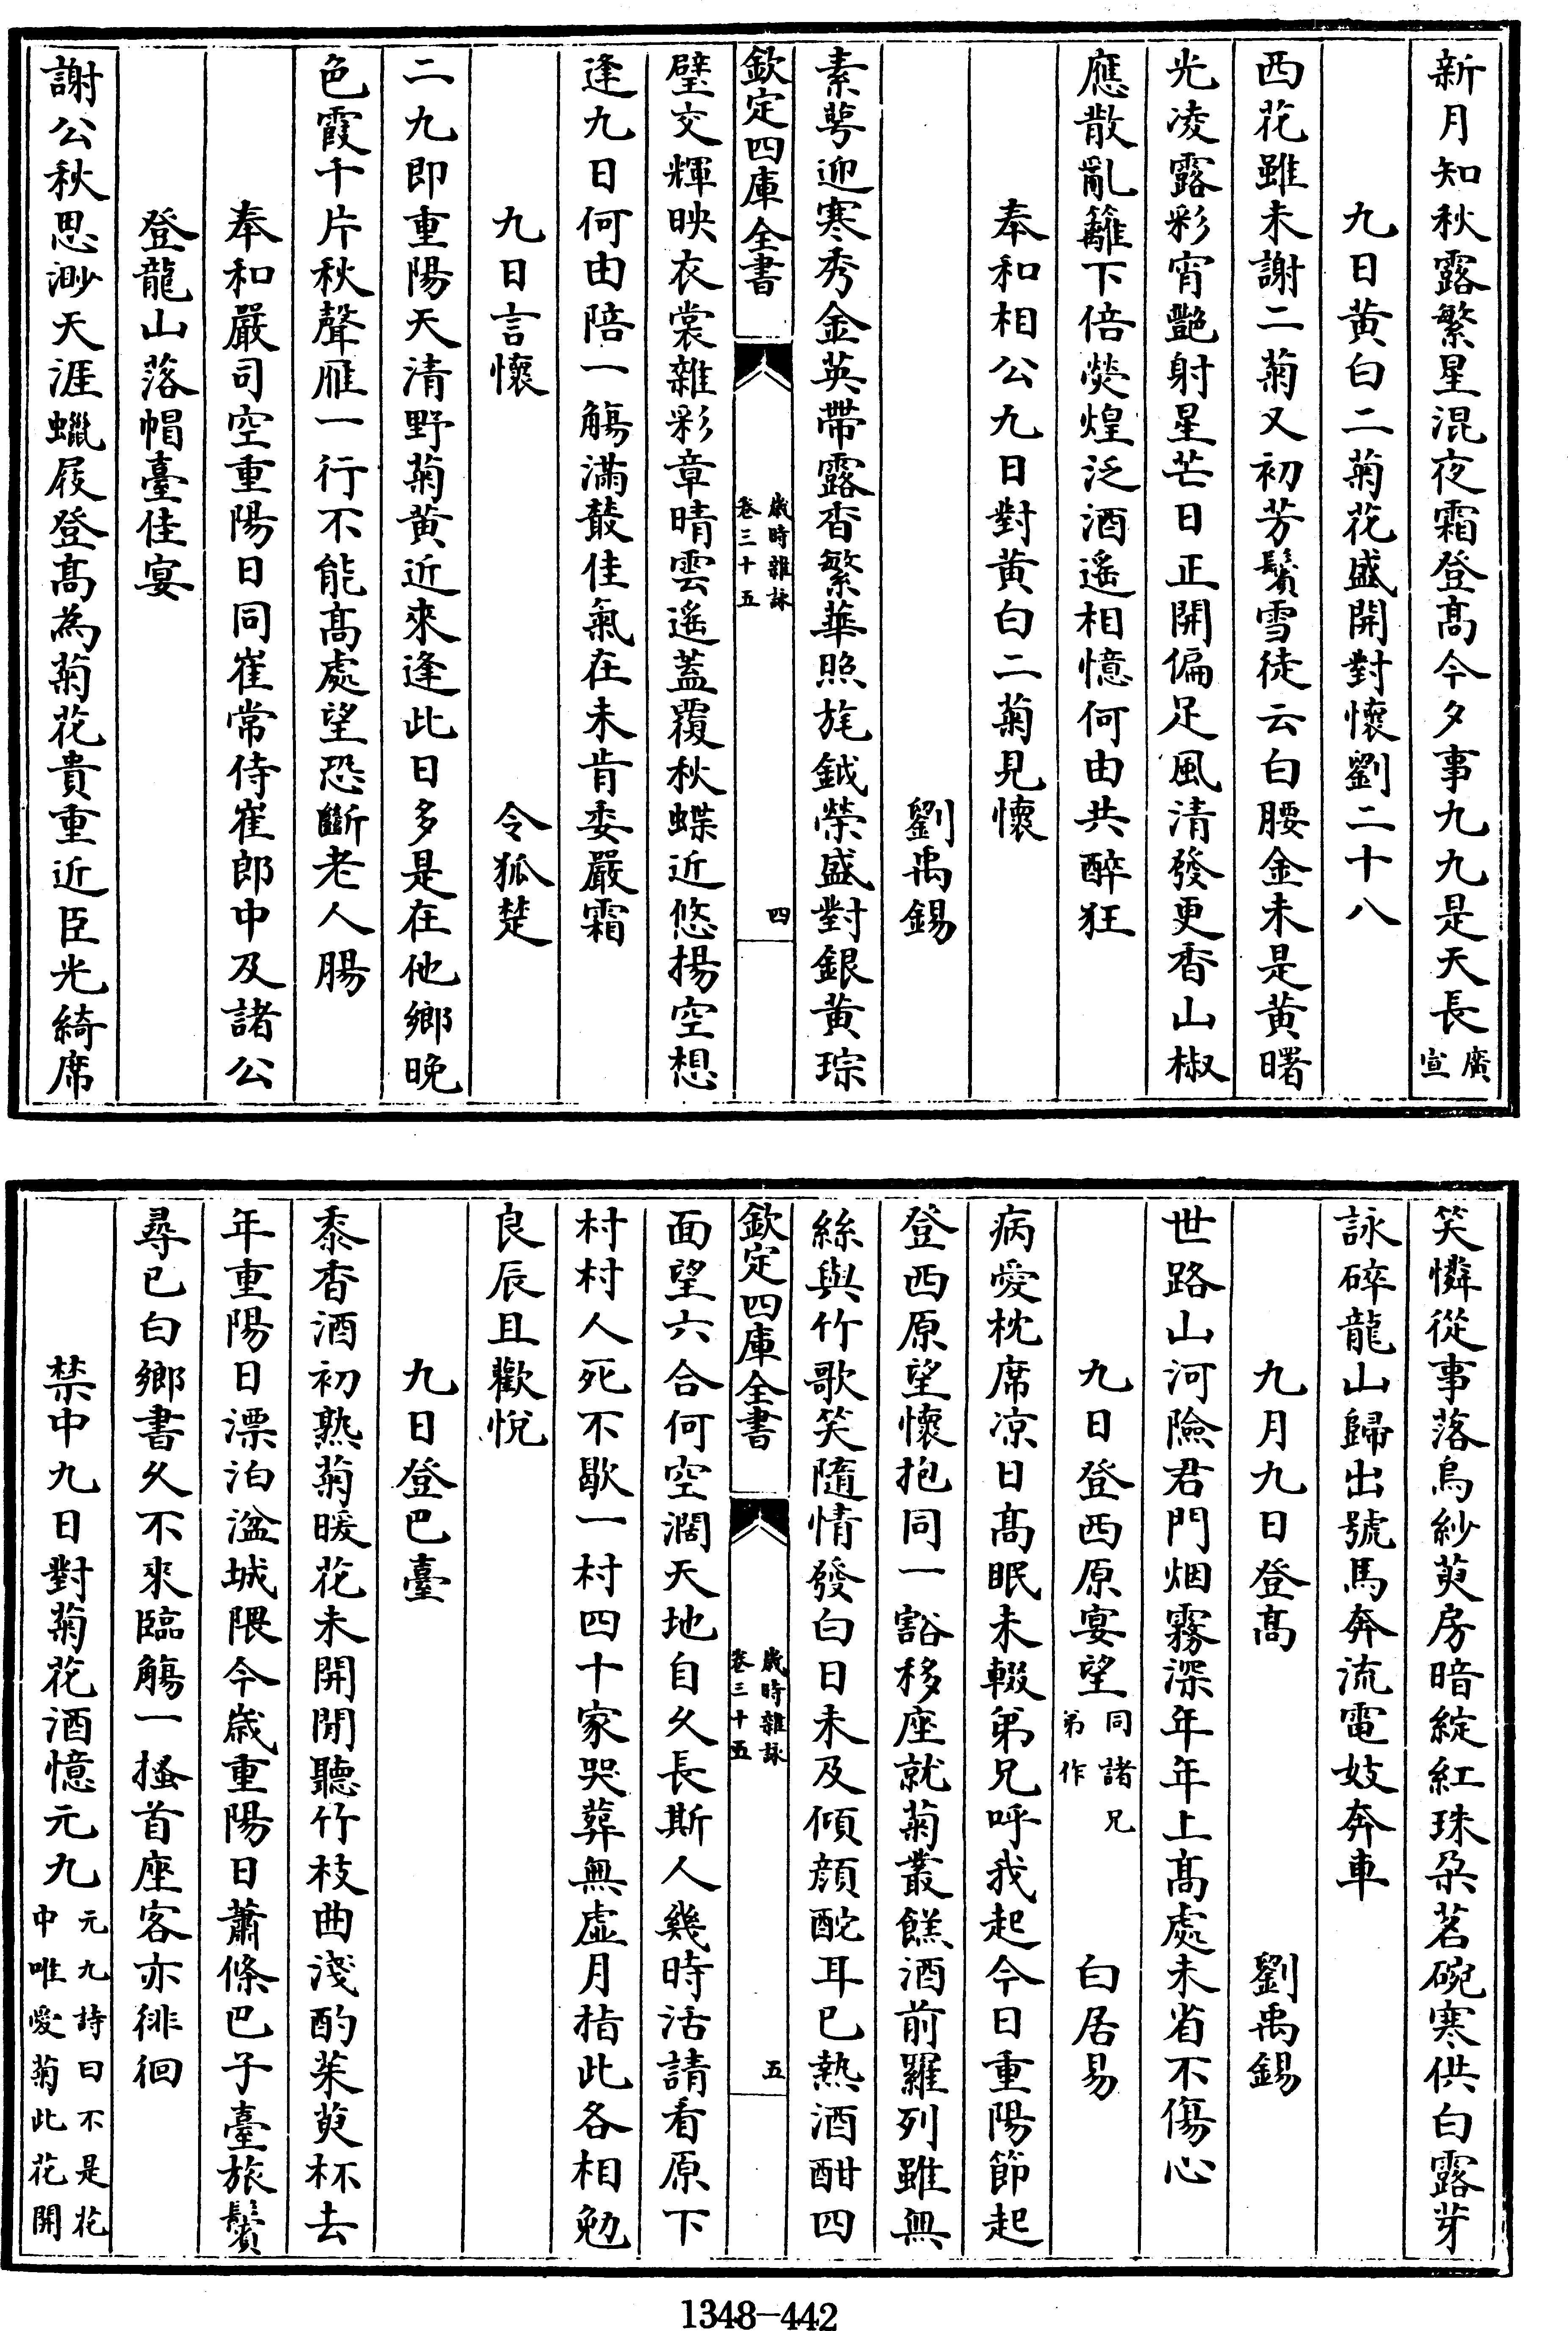 新月知秋露繁星混夜霜登髙今夕事九九是天長廣宣
九日黄白二菊花盛開對懷劉二十八
西花雖未謝二菊又初芳鬢雪徒云白腰金未是黄曙
光凌露彩宵艶射星芒日正開偏足風清發更香山椒
應散亂籬下倍熒煌泛酒遥相憶何由共醉狂
奉和相公九日對黄白二菊見懷
劉禹錫
素萼迎寒秀金英帶露香繁華照旄鉞榮盛對銀黄琮
欽定四庫全書
歳時雜詠
卷三十五
四
璧交輝映衣裳雜彩章晴雲遥葢覆秋蝶近悠揚空想
逢九日何由陪一觴滿叢佳氣在未肯委嚴霜
九日言懷 令狐楚
二九即重陽天清野菊黄近來逢此日多是在他鄉晚
色霞千片秋聲雁一行不能髙處望恐斷老人腸
奉和嚴司空重陽日同崔常侍崔郎中及諸公
登龍山落帽臺佳宴
謝公秋思渺天涯蠟屐登髙為菊花貴重近臣光綺席
笑憐從事落烏紗萸房暗綻紅珠朶茗碗寒供白露芽
詠碎龍山歸出號馬奔流電妓奔車
九月九日登髙 劉禹錫
世路山河險君門烟霧深年年上髙處未省不傷心
九日登西原宴望同諸兄弟作 白居易
病愛枕席凉日髙眠未輟弟兄呼我起今日重陽節起
登西原望懷抱同一豁移座就菊叢餻酒前羅列雖無
絲與竹歌笑隨情發白日未及傾顔酡耳已熱酒酣四
欽定四庫全書
歳時雜詠
卷三十五
五
面望六合何空濶天地自乆長斯人幾時活請看原下
村村人死不歇一村四十家哭葬無虚月指此各相勉
良辰且歡悦
九日登巴臺
黍香酒初熟菊暖花未開閒聽竹枝曲淺酌茱萸杯去
年重陽日漂泊湓城隈今歳重陽日蕭條巴子臺旅鬢
尋已白鄉書乆不來臨觴一搔首座客亦徘徊
禁中九日對菊花酒憶元九元九詩曰不是花中唯愛菊此花開
1348-442